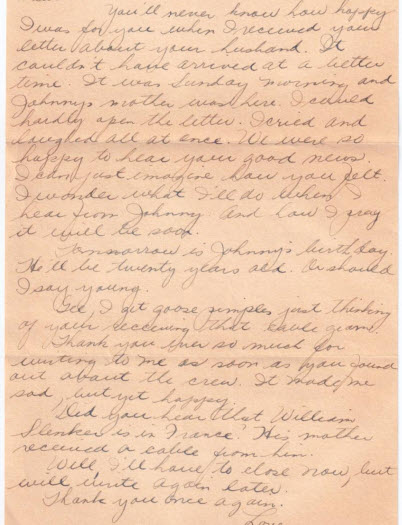 You'll never know how happy
I was for you when I received your
letter about your husband. It
couldn't have arrived at a better
time. It was Sunday morning and
Johnny's mother was here. I could
hardly open the letter. I cried and
laughed all at once. We were so
happy to hear your good news.
I can just imagine how you felt.
I wonder what I'll do when I
hear from Johnny. And how I pray
it will be soon.
Tommorrow is Johnny's birthday.
He'll be twenty years old. Or should
I say young.
Gee, I get goose pimples just thinking
of your receiving that cable gram.
Thank you ever so much for
writing to me as soon as you found
out about the crew. It made me
sad, but yet happy.
Did you hear that William
Slenker is in France? His mother
received a cable from him.
Well, I'll have to close now, but
will write again later.
Thank you once again.
Love